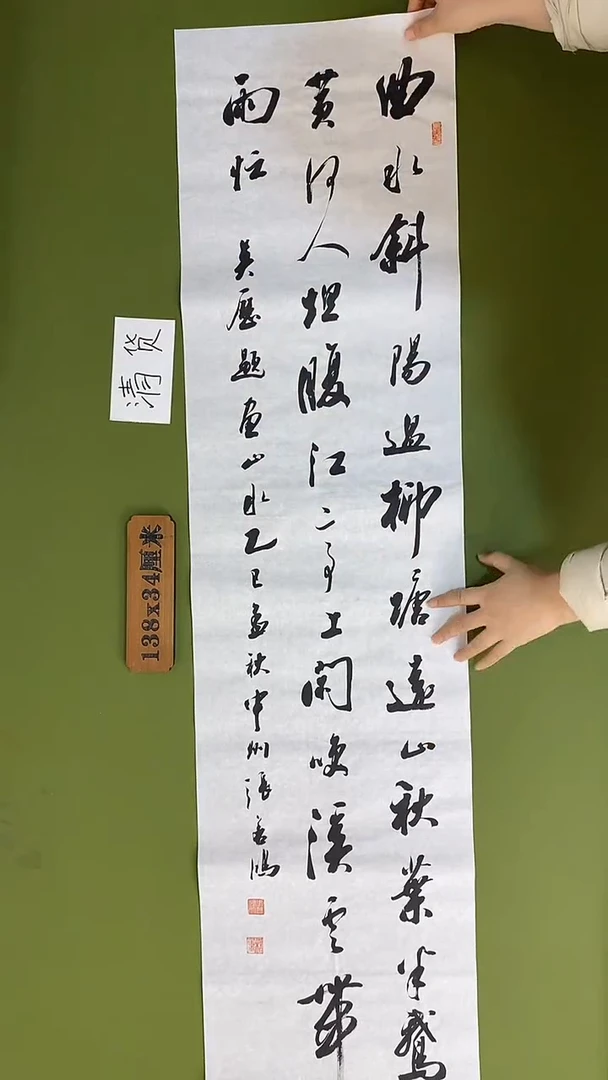 曲水斜陽過柳塘遠山秋葉半鵝
黄何人坦腹江亭上閑喚溪雲帶
雨忙
吴歷題畫山水乙巳孟秋中州張
清货
138x34厘米